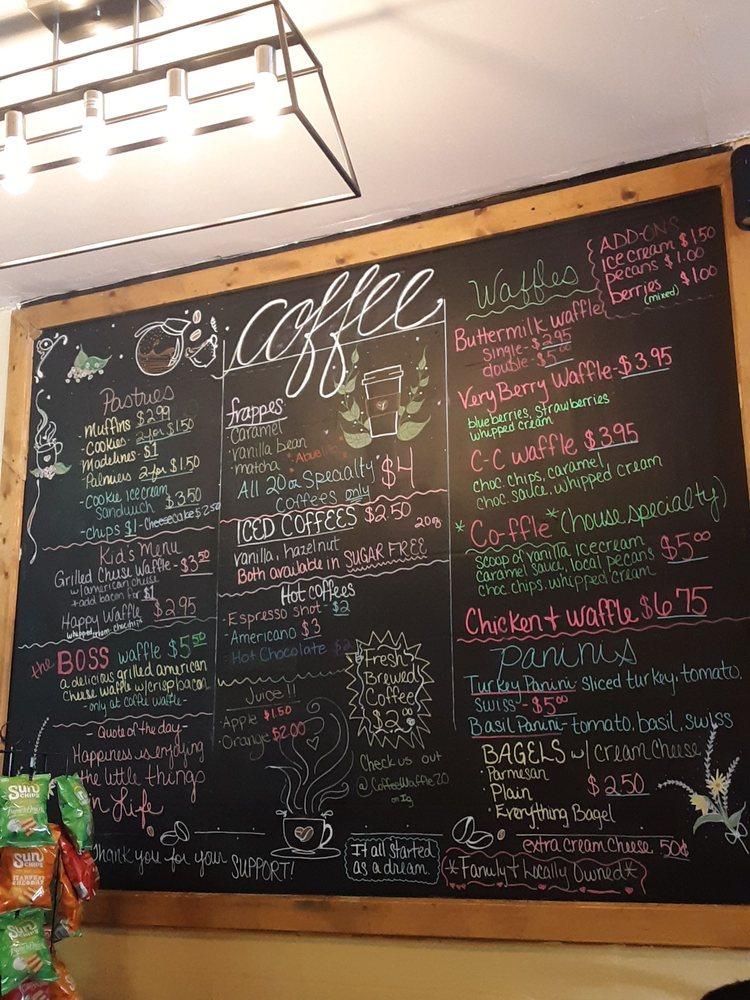 coffee
Pastries
- Muffins $2.99
- Cookies - 2-for $1.50
- Madelines - $1
- Palmiers 2-for $1.50
- Cookie ice cream
sandwich $3.50
- chips $1 - Cheesecake $2.50
Kid's Menu
Grilled Cheese Waffle - $3.50
w/ american cheese
+ add bacon for $1
Happy Waffle $2.95
the BOSS waffle $5.50
a delicious grilled american
cheese waffle w/ crisp bacon
- only at coffi waffle -
- Quote of the day -
Happiness is enjoying
the little things
in Life
Thank you for your SUPPORT!
frappes
- caramel
- vanilla bean
- matcha
All 20oz Specialty $4
coffees only
ICED COFFEES $2.50
20oz
vanilla, hazelnut
Both available in SUGAR FREE
Hot coffees
- Espresso shot - $2
- Americano $3
- Hot Chocolate $2
Juice!!
- Apple $1.50
- Orange $2.00
Fresh
Brewed
Coffee
$2.00
Check us out
@CoffeeWaffle20
on Ig
It all started
as a dream.
Waffles
ADD-ONS
Ice cream $1.50
pecans $1.00
berries $1.00
(mixed)
Buttermilk waffle
single - $2.95
double - $5.00
Very Berry Waffle - $3.95
blueberries, strawberries
whipped cream
C-C waffle $3.95
choc chips, caramel
choc sauce, whipped cream
*Co-ffle* (house specialty)
scoop of vanilla icecream
caramel sauce, local pecans $5.00
choc chips, whipped cream
Chicken + waffle $6.75
paninis
Turkey Panini - sliced turkey, tomato,
swiss - $5.00
Basil Panini - tomato, basil, swiss
BAGELS w/ cream cheese
· Parmesan
· Plain $2.50
· Everything Bagel
extra cream cheese 50¢
*Family + Locally Owned*
SUN
CHIPS
SUN
CHIPS
HARVEST
CHEDDAR
SUN
CHIPS